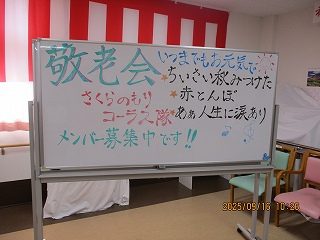 敬老会
いつまでもお元気で
★ちいさい秋みつけた
★赤とんぼ
★ああ人生に涙あり
さくらのもり
コーラス隊
メンバー募集中です!!
2025/09/16 10:26